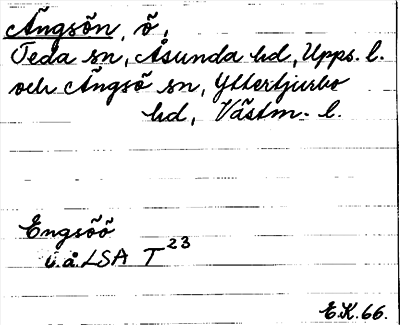 Ängsön, ö,
Teda sn, Åsunda hd, Upps. l.
och Ängsö sn, Yttertjurbo
hd, Västm. l.
Engsöö
u.å. LSA T 23
E.K. 66.